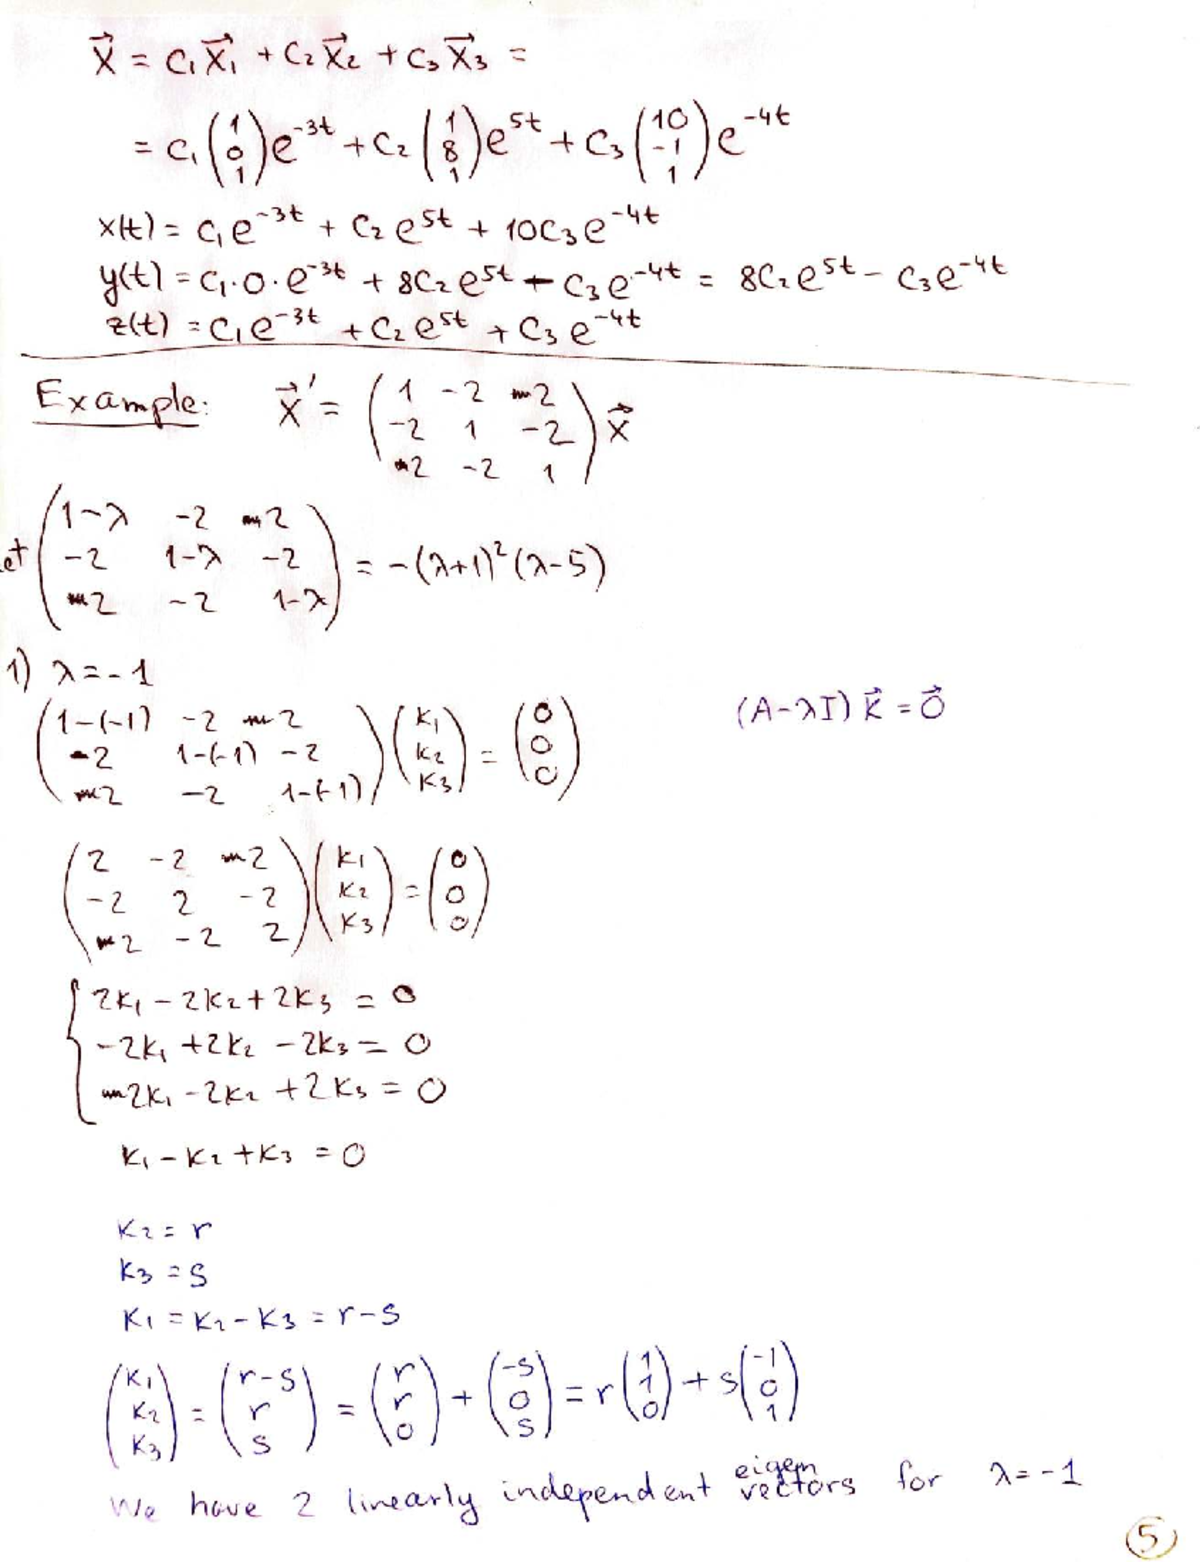 X⃗ = C₁X⃗₁ + C₂X⃗₂ + C₃X⃗₃ =
= C₁ (1 0 1) e^-3t + C₂ (1 8 1) e^5t + C₃ (10 -1 1) e^-4t
x(t) = C₁e^-3t + C₂e^5t + 10C₃e^-4t
y(t) = C₁·0·e^-3t + 8C₂e^5t - C₃e^-4t = 8C₂e^5t - C₃e^-4t
z(t) = C₁e^-3t + C₂e^5t + C₃e^-4t
Example: X⃗' = (1 -2 2
-2 1 -2
2 -2 1) X⃗
et (1-λ -2 2
-2 1-λ -2
2 -2 1-λ) = -(λ+1)²(λ-5)
1) λ = -1
(A-λI) K⃗ = 0⃗
(1-(-1) -2 2
-2 1-(-1) -2
2 -2 1-(-1)) (K₁ K₂ K₃) = (0 0 0)
(2 -2 2
-2 2 -2
2 -2 2) (K₁ K₂ K₃) = (0 0 0)
2K₁ - 2K₂ + 2K₃ = 0
-2K₁ + 2K₂ - 2K₃ = 0
2K₁ - 2K₂ + 2K₃ = 0
K₁ - K₂ + K₃ = 0
K₂ = r
K₃ = s
K₁ = K₂ - K₃ = r-s
(K₁ K₂ K₃) = (r-s r s) = (r r 0) + (-s 0 s) = r (1 1 0) + s (-1 0 1)
We have 2 linearly independent eigen vectors for λ = -1
5